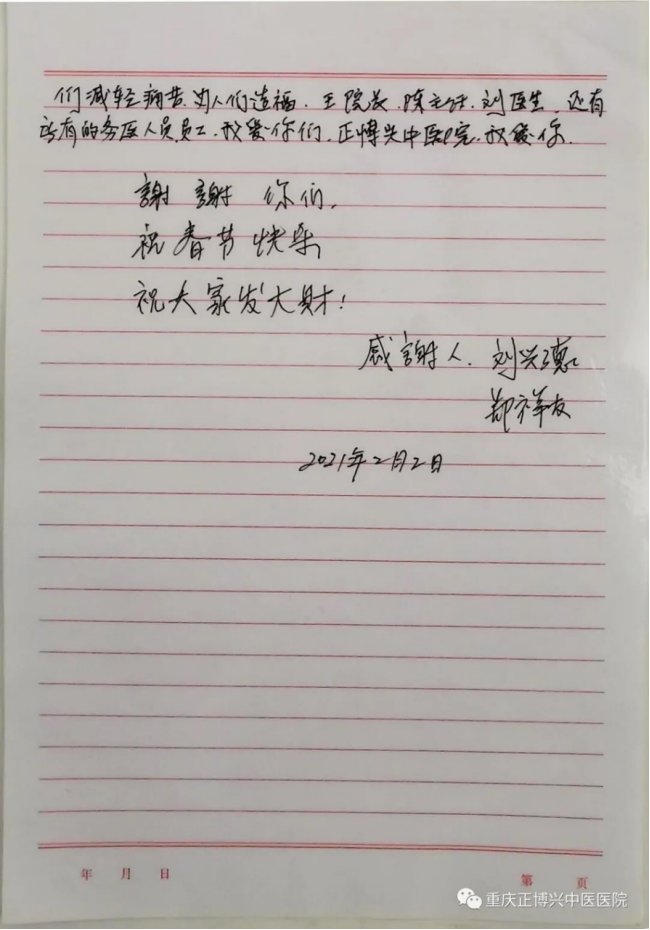 们减轻病苦、为人们造福．王院长．陈主任．刘医生．还有
所有的务医人员员工．我爱你们．正博兴中医院．我爱你．
謝 謝 你们．
祝春节快乐
祝大家发大財！
感謝人．刘兴惠
郑祥友
2021年2月2日
年 月 日
第 页
重庆正博兴中医医院